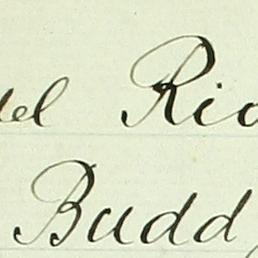 del Ric
Budd